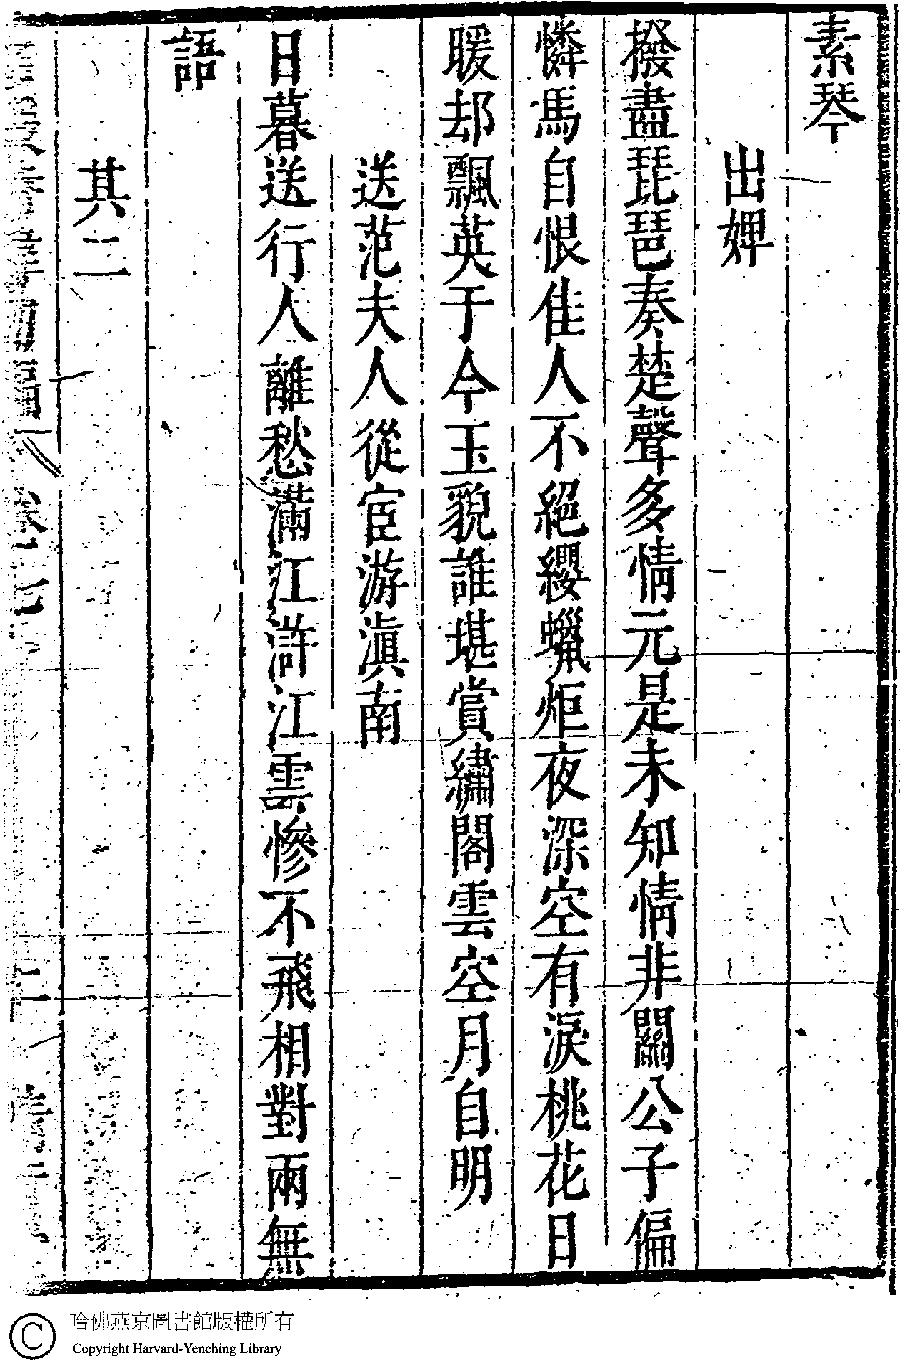 素琴
出婢
撥盡琵琶奏楚聲多情元是未知情非關公子偏
憐馬自恨佳人不絕纓蠟炬夜深空有淚桃花日
暖却飄英于今玉貌誰堪賞繡閣雲空月自明
送范夫人從宦游滇南
日暮送行人離愁滿江滸江雲慘不飛相對兩無
語
其二
哈佛燕京圖書館版權所有
Copyright Harvard-Yenching Library